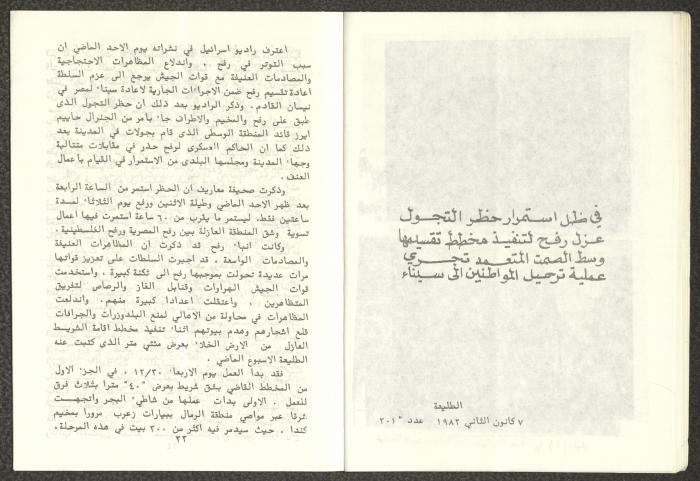 في ظل استمرار حظر التجول
عزل رفح لتنفيذ مخطط تقسيمها
وسط الصمت المتعمد تجري
عملية ترحيل المواطنين الى سيناء
الطليعة
٧ كانون الثاني ١٩٨٢ عدد ٢٠١
اعترف راديو اسرائيل في نشراته يوم الاحد الماضي ان
سبب التوتر في رفح ، واندلاع المظاهرات الاحتجاجية
والمصادمات العنيفة مع قوات الجيش يرجع الى عزم السلطة
اعادة تقسيم رفح ضمن الاجراءات الجارية لاعادة سيناء لمصر في
نيسان القادم. وذكر الراديو بعد ذلك ان حظر التجول الذي
طبق على رفح والمخيم والاطراف جاء بأمر من الجنرال حاييم
ايرز قائد المنطقة الوسطى الذي قام بجولات في المدينة بعد
ذلك كما ان الحاكم العسكرى لرفح حذر في مقابلات متتالية
وجهاء المدينة ومجلسها البلدى من الاستمرار في القيام بأعمال
العنف.
وذكرت صحيفة معاريف ان الحظر استمر من الساعة الرابعة
بعد ظهر الاحد الماضي وطيلة الاثنين ورفع يوم الثلاثاء لمدة
ساعتين فقط، ليستمر ما يقرب من ٦٠ ساعة استمرت فيها اعمال
تسوية وشق المنطقة العازلة بين رفح المصرية ورفح الفلسطينية.
وكانت انباء رفح قد ذكرت ان المظاهرات العنيفة
والمصادمات الواسعة ، قد اجبرت السلطات على تعزيز قواتها
مرات عديدة تحولت بموجبها رفح الى ثكنة كبيرة ، واستخدمت
قوات الجيش الهراوات وقنابل الغاز والرصاص لتفريق
المتظاهرين ، واعتقلت اعدادا كبيرة منهم. واندلعت
المظاهرات في محاولة من الاهالي لمنع البلدوزرات والجرافات
قلع اشجارهم وهدم بيوتهم اثناء تنفيذ مخطط اقامة الشريط
العازل من الارض الخلاء بعرض مئتي متر الذى كتبت عنه
الطليعة الاسبوع الماضي .
فقد بدأ العمل يوم الاربعاء ١٢/٣٠ ، في الجزء الاول
من المخطط القاضي بشق شريط بعرض "٤٠" مترا بثلاث فرق
للعمل . الاولى بدأت عملها من شاطيء البحر واتجهت
شرقا عبر مواصي منطقة الرمال ببيارات زعرب مرورا بمخيم
كندا ، حيث سيدمر فيه اكثر من ٣٠٠ بيت في هذه المرحلة.
٢٣